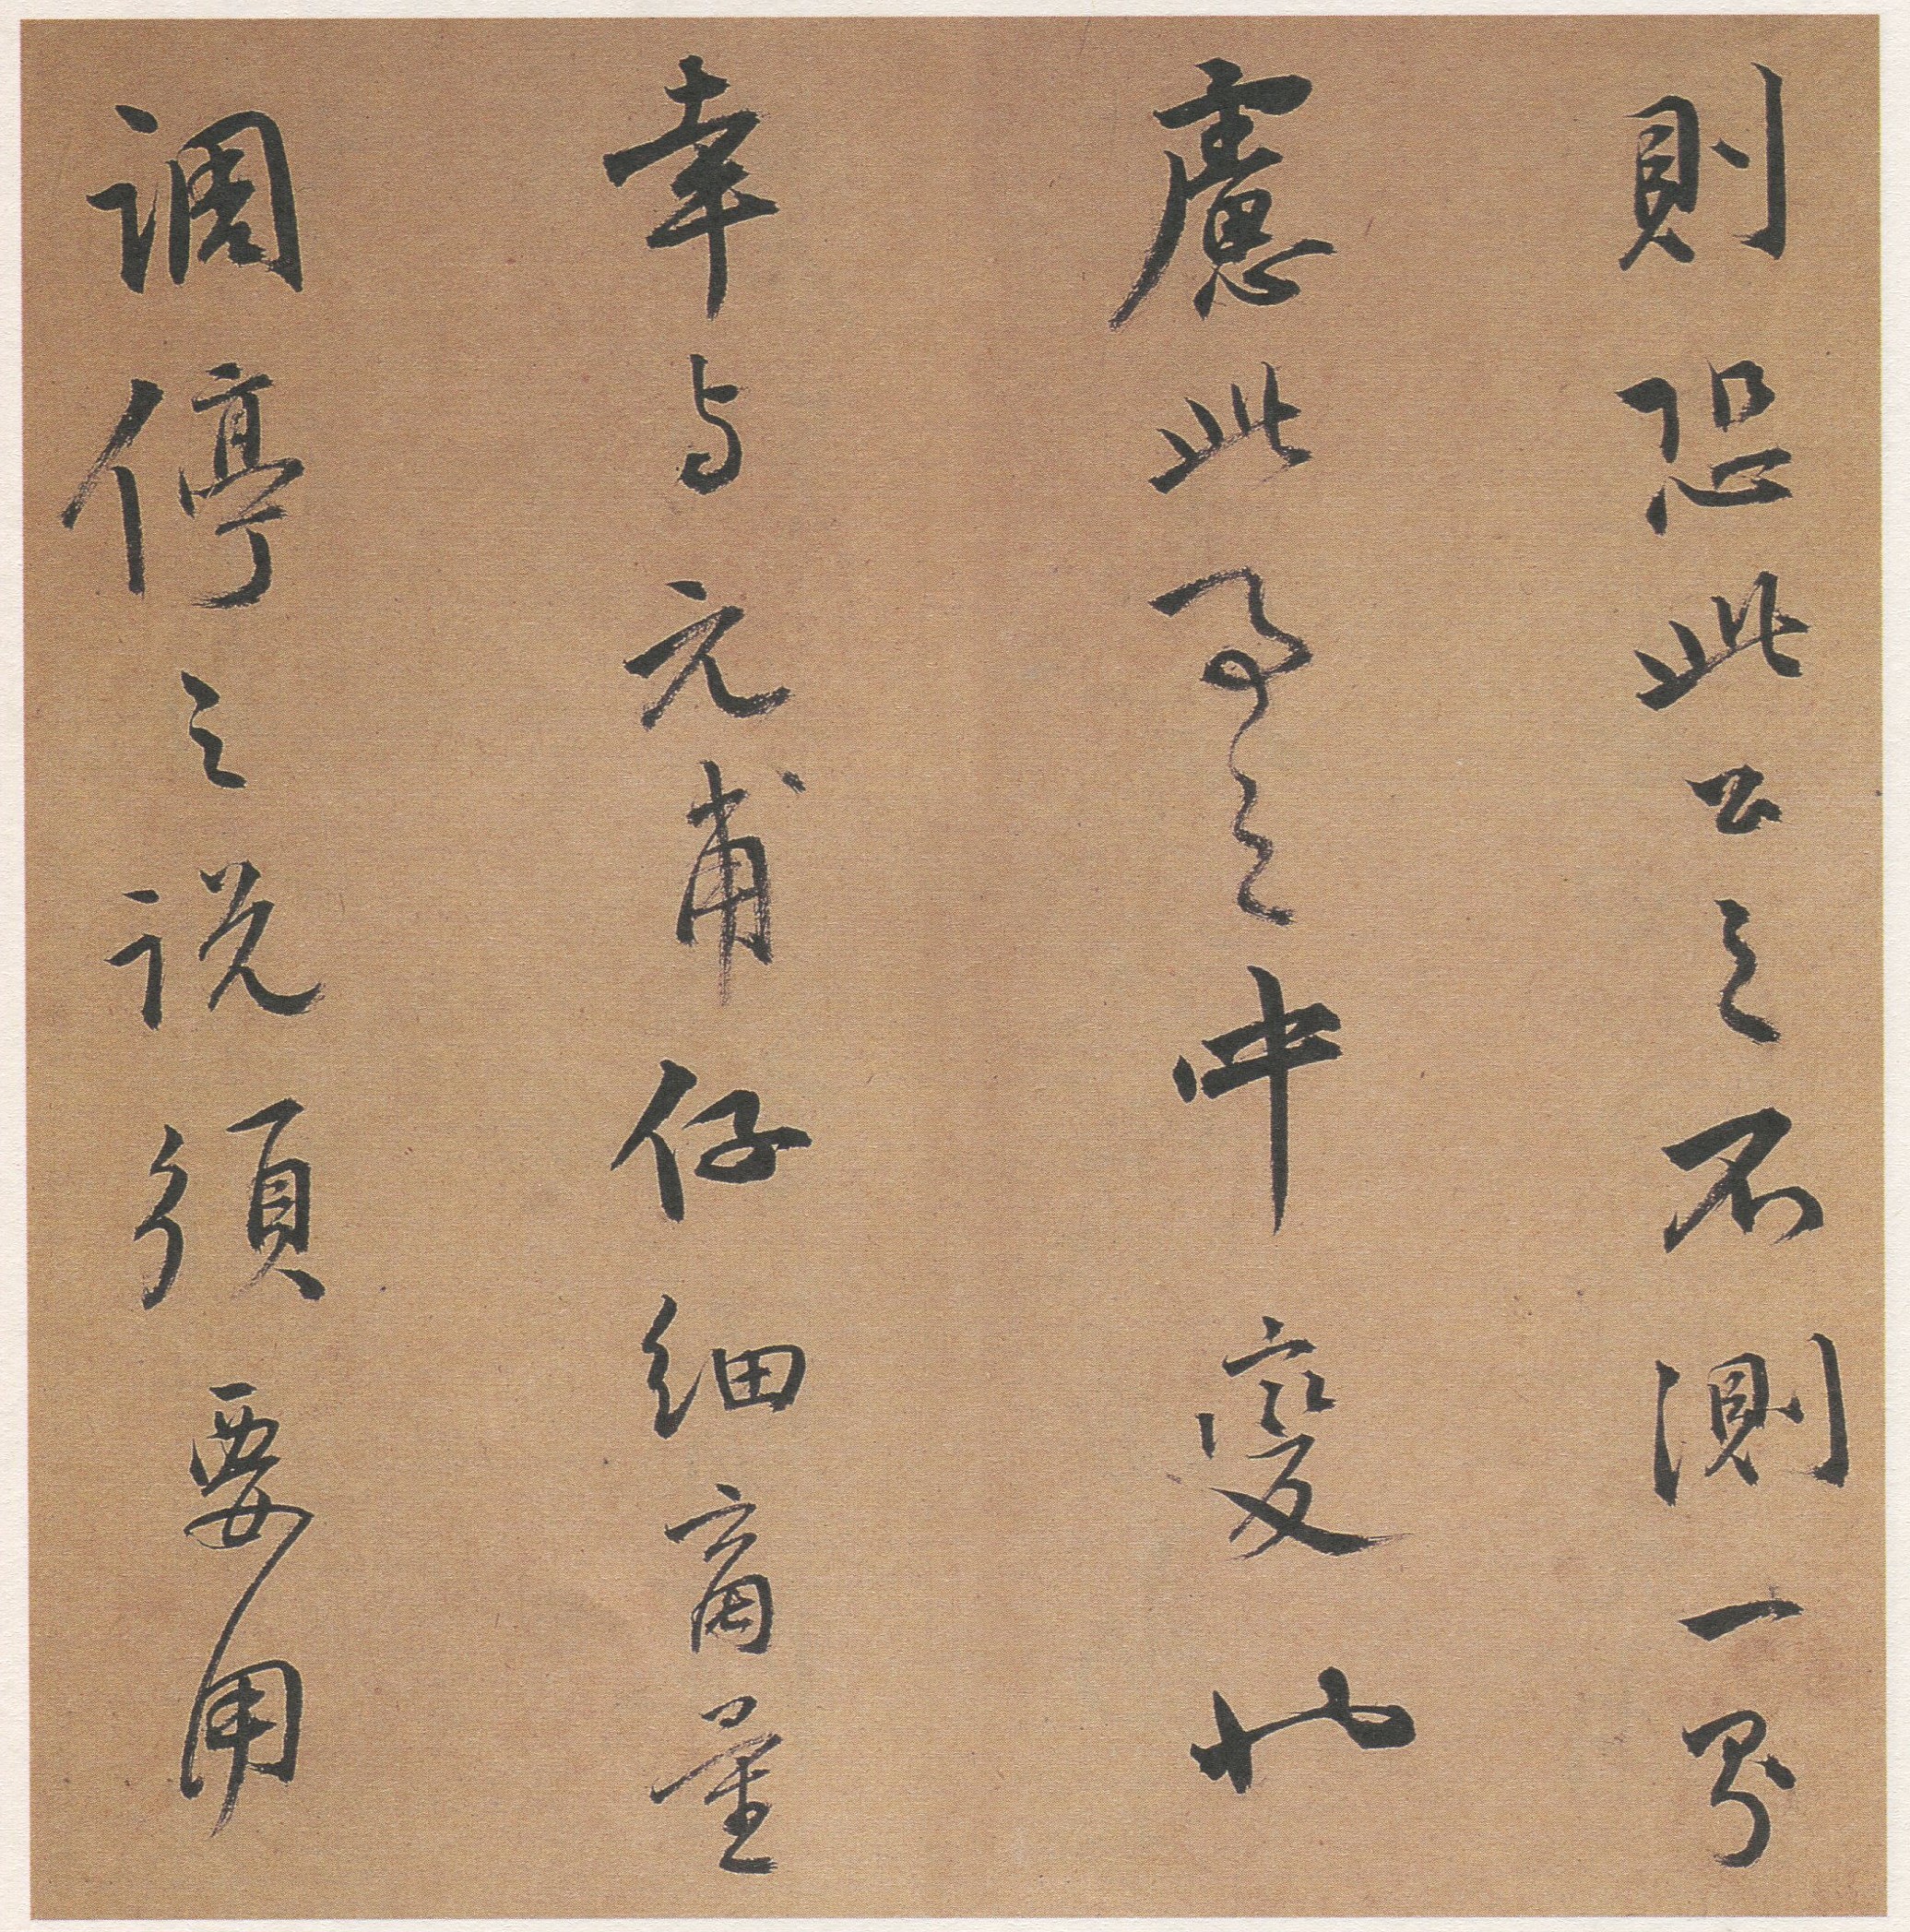 則恐此公之不測一
慮此事之中變也
幸与元甫仔細商量
調停之說須要用